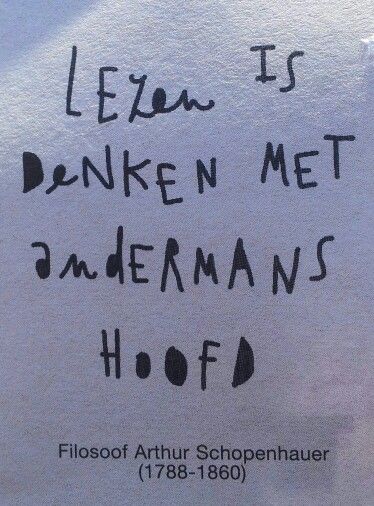 LEZen IS
DeNKEN MET
andERMANS
HOOFD
Filosoof Arthur Schopenhauer
(1788-1860)